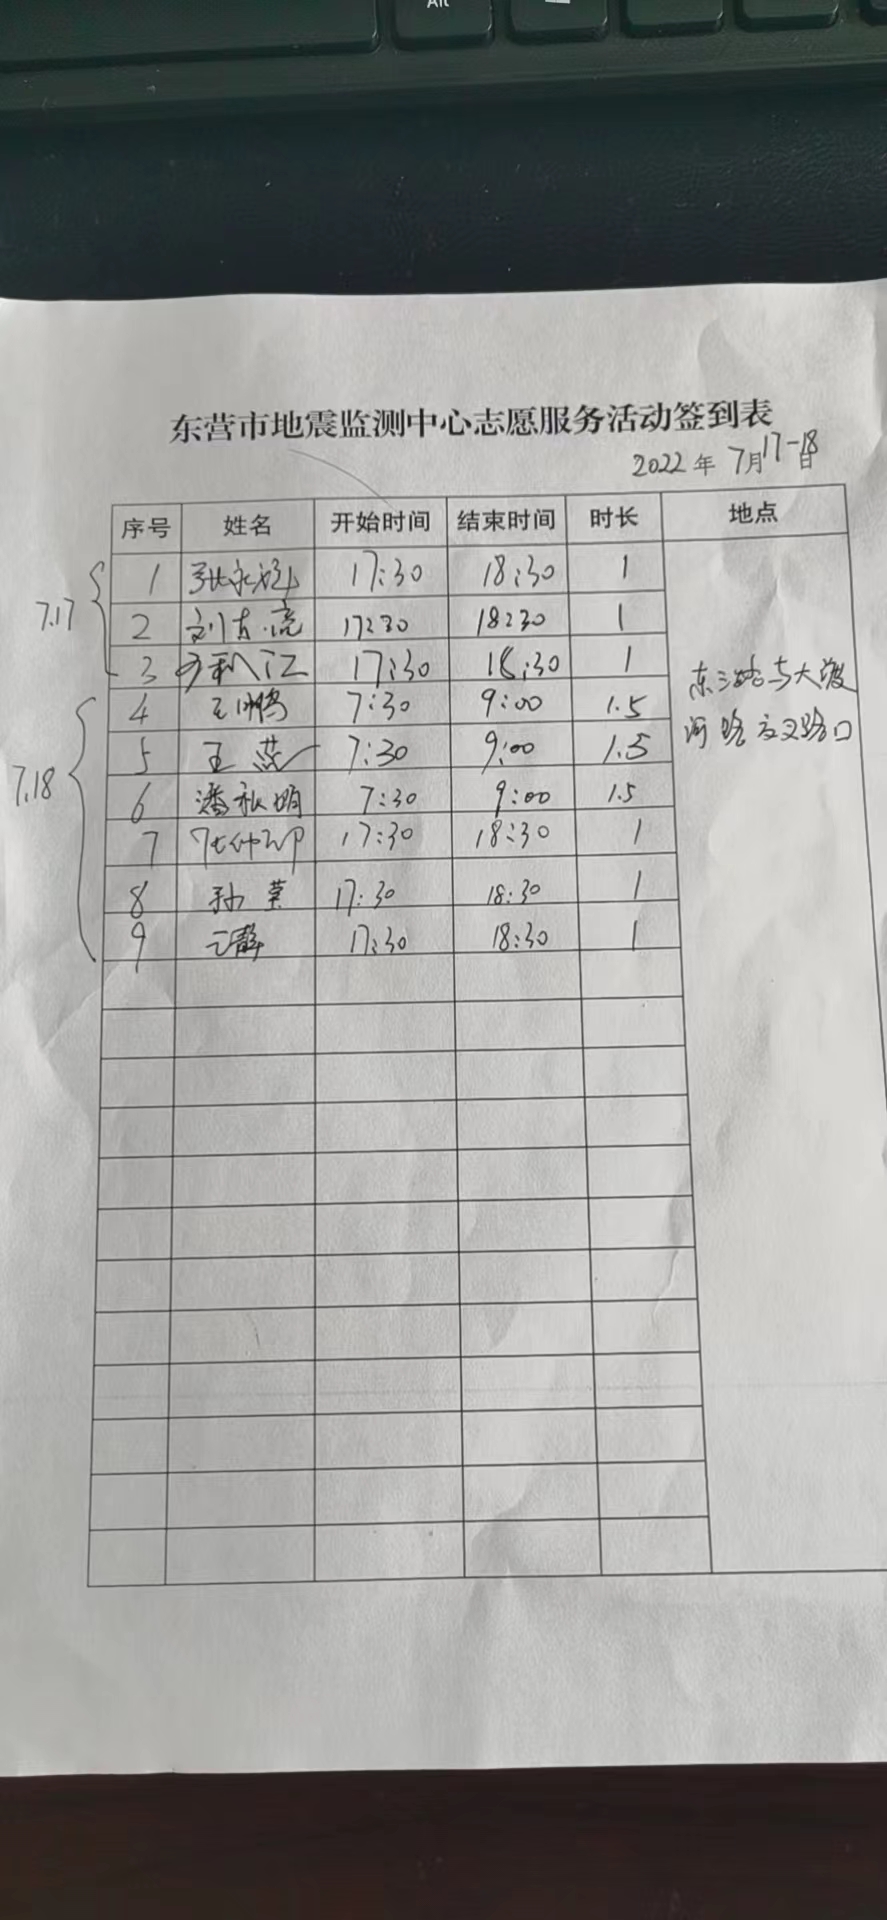 Alt
东营市地震监测中心志愿服务活动签到表
2022年 7月17-18日
序号 姓名 开始时间 结束时间 时长 地点
7.17
1 张永 17:30 18:30 1
2 刘古亮 17:30 18:30 1
3 江 17:30 18:30 1
东三路与大渡
河路交叉路口
7.18
4 王鹏 7:30 9:00 1.5
5 王燕 7:30 9:00 1.5
6 潘秋明 7:30 9:00 1.5
7 17:30 18:30 1
8 孙 17:30 18:30 1
9 静 17:30 18:30 1